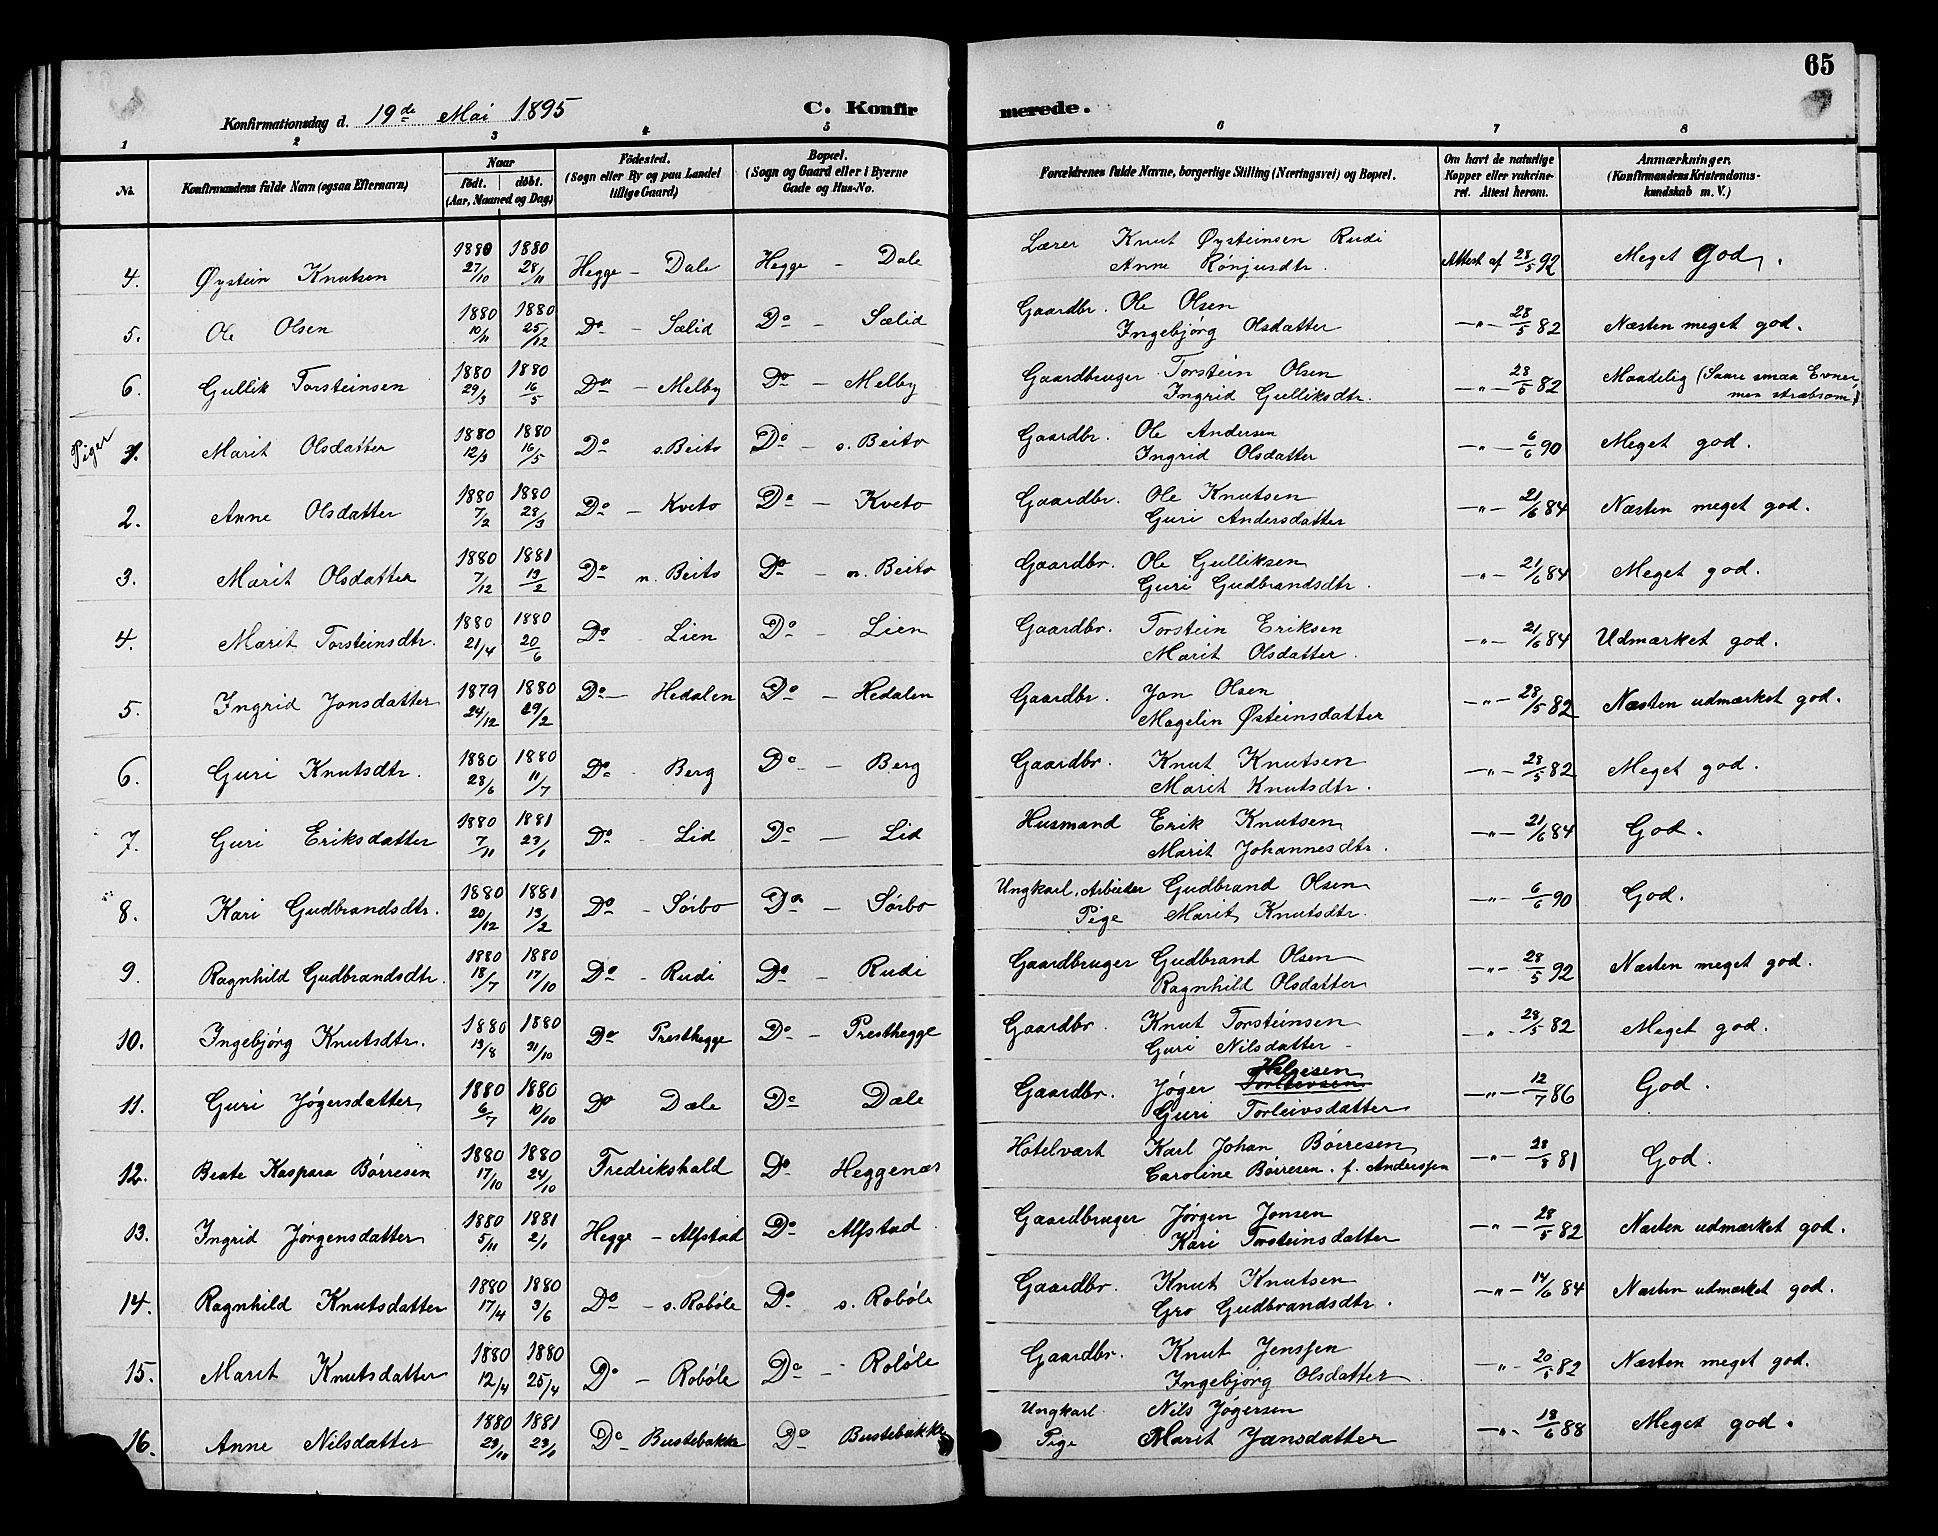 65
Konfirmationsdag d. 19de Mai 1895 C. Konfirmerede.
1 2 3 4 5 6 7 8
No. Konfirmandens fulde Navn (ogsaa Efternavn) Naar født. døbt. (Aar, Maaned og Dag) Fødested. (Sogn eller By og paa Landet tillige Gaard) Bopæl. (Sogn og Gaard eller i Byerne Gade og Hus-No. Forældrenes fulde Navne, borgerlige Stilling (Næringsvei) og Bopæl. Om havt de naturlige Kopper eller vakcineret. Attest herom. Anmærkninger. (Konfirmandens Kristendomskundskab m. V.)
4. Øystein Knutsen 1880 27/10 1880 28/11 Hegge - Dale Hegge - Dale Lærer Knut Øysteinsen Rudi Anne Rønjusdtr. Attest af 28/5 92 Meget god.
5. Ole Olsen 1880 10/11 1880 25/12 Do - Sælid Do - Sælid Gaardbr. Ole Olsen Ingebjørg Olsdatter -"- 28/5 82 Næsten meget god.
6 Gullik Torsteinsen 1880 29/3 1880 16/5 Do - Melby Do - Melby Gaardbruger Torstein Olsen Ingrid Gulliksdtr. -"- 28/5 82 Maadelig (Saare smaa Evner, men stræbsom)
Piger 1. Marit Olsdatter 1880 12/3 1880 16/5 Do s. Beito Do - s. Beito Gaardbr. Ole Andersen Ingrid Olsdatter -"- 6/6 90 Meget god.
2. Anne Olsdatter 1880 7/2 1880 28/3 Do - Kveto Do - Kveto Gaardbr. Ole Knutsen Guri Andersdatter -"- 21/6 84 Næsten meget god.
3. Marit Olsdatter 1880 7/12 1881 13/2 Do n. Beito Do - n. Beito Gaardbr. Ole Gulliksen Guri Gudbrandsdtr. -"- 21/6 84 Meget god.
4. Marit Torsteinsdtr. 1880 21/4 1880 20/6 Do - Lien Do - Lien Gaardbr. Torstein Eriksen Marit Olsdatter. -"- 21/6 84 Udmærket god.
5. Ingrid Jonsdatter 1879 24/12 1880 29/2 Do - Hedalen Do - Hedalen Gaardbr. Jon Olsen Magelin Østeinsdatter -"- 28/5 82 Næsten udmærket god.
6 Guri Knutsdtr. 1880 28/6 1880 11/7 Do - Berg Do - Berg Gaardbr. Knut Knutsen Marit Knutsdtr. -"- 28/5 82 Meget god.
7. Guri Eriksdatter 1880 7/11 1881 23/1 Do - Lid Do - Lid Husmand Erik Knutsen Marit Johannesdtr. -"- 21/6 84 God.
8. Kari Gudbrandsdtr. 1880 20/12 1881 13/2 Do - Sørbo Do - Sørbo Ungkarl, Arbeider Gudbrand Olsen Pige Marit Knutsdtr. -"- 6/6 90 God.
9. Ragnhild Gudbrandsdtr. 1880 18/7 1880 17/10 Do - Rudi Do - Rudi Gaardbruger Gudbrand Olsen Ragnhild Olsdatter -"- 28/5 92 Næsten meget god.
10. Ingebjørg Knutsdtr. 1880 13/8 1880 31/10 Do Presthegge Do - Presthegge Gaardbr. Knut Torsteinsen Guri Nilsdatter - " - 28/5 82 Meget god.
11. Guri Jøgersdatter 1880 6/7 1880 10/10 Do Dale Do Dale Gaardbr. Jøger Helgesen Guri Torleivsdatter -"- 12/7 86 God.
12. Beate Kaspara Børresen 1880 17/10 1880 24/10 Fredrikshald Do Heggenæs Hotelvært Karl Johan Børresen Caroline Børresen. f. Anderssen -"- 28/8 81 God.
13. Ingrid Jørgensdatter 1880 5/11 1881 2/1 Hegge - Alfstad Do Alfstad Gaardbruger Jørgen Jonsen Kari Torsteinsdatter -"- 28/5 82 Næsten udmærket god.
14. Ragnhild Knutsdatter 1880 17/4 1880 3/6 Do - s. Robøle Do s. Robøle Gaardbr. Knut Knutsen Gro Gudbrandsdtr. -"- 14/6 84 Næsten udmærket god.
15. Marit Knutsdatter 1880 12/4 1880 25/4 Do - Robøle Do - Robøle Gaardbr. Knut Jenssen Ingebjørg Olsdatter " - 20/5 82 Næsten meget god.
16. Anne Nilsdatter 1880 23/10 1881 23/1 Do Bustebakke Do Bustebakke Ungkarl Nils Jøgersen Pige Marit Jansdatter -"- 18/6 88 Meget god.